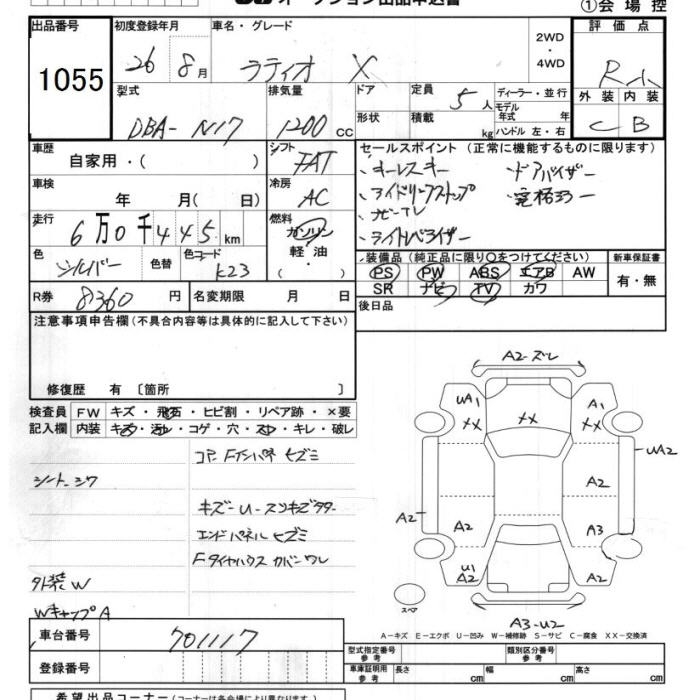 オークション出品申込書
①会場控
出品番号
1055
初度登録年月
26 8月
車名・グレード
ラティオ X
2WD・4WD
評価点
RA
外装 内装
C B
型式
DBA-N17
排気量
1200 cc
ドア
形状
定員
5人
積載
kg
ディーラー・並行
モデル年式 年
ハンドル 左・右
車歴
自家用・( )
シフト
FAT
セールスポイント (正常に機能するものに限ります)
・キーレスキー ・ドアバイザー
・アイドリングストップ
・ライトレベライザー
車検
年 月( 日)
冷房
AC
走行
6万0千445km
燃料
ガソリン
軽・油
( ・ )
色
シルバー
色替
色コード
K23
装備品 (純正品に限り○をつけてください)
PS PW ABS エアB AW
SR ナビ TV カワ
新車保証書
有・無
R券
8360円
名変期限 月 日
後日品
注意事項申告欄 (不具合内容等は具体的に記入して下さい)
修復歴 有 〔箇所 〕
検査員記入欄
FW キズ・飛石・ヒビ割・リペア跡・×要
内装 キズ・汚れ・コゲ・穴・スレ・キレ・破レ
コアF下パネヒズミ
シートシワ
キズーU-スリキズ
エンドパネルヒズミ
Fタイヤハウスカバーワレ
外装W
WキャップA
A2-ズレ
UA1
XX
XX
A1
XX
UA2
A2
A2
A2
A3
U1
A2
A2
スペア
A3-U2
A-キズ E-エクボ U-凹み W-補修跡 S-サビ C-腐食 XX-交換済
車台番号
701117
登録番号
型式指定番号
参考
類別区分番号
参考
車庫証明用
参考
長さ cm
幅 cm
高さ cm
希望出品コーナー (コーナーは各会場により異なります)